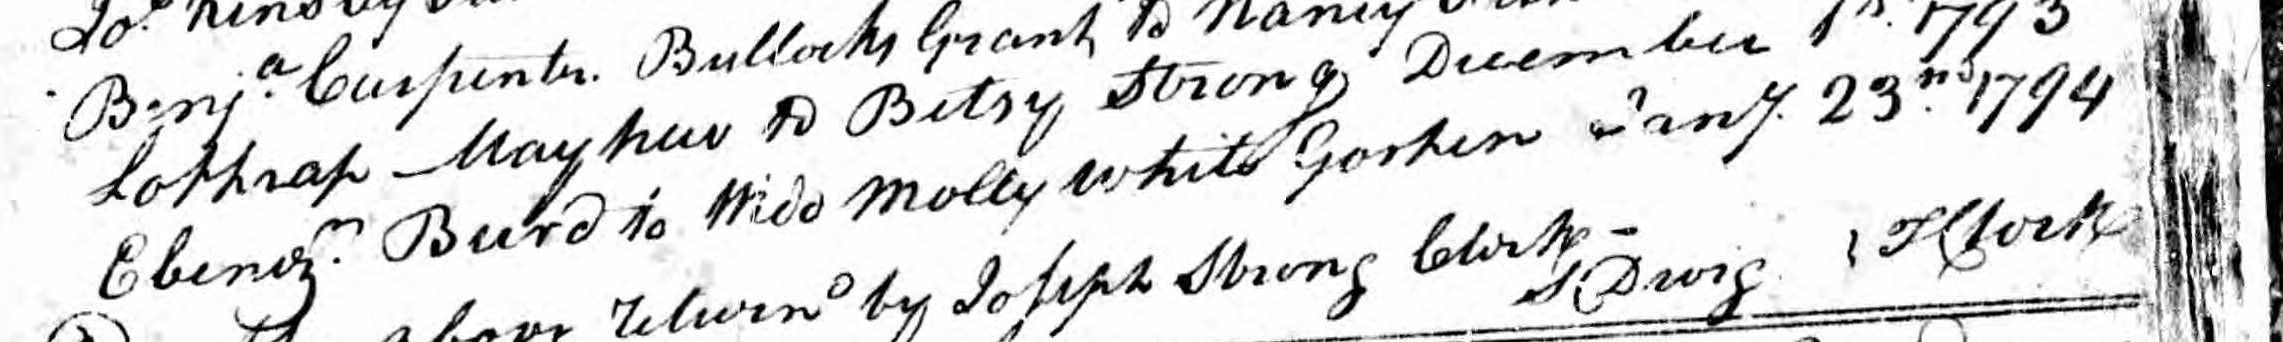 Jos. Kinsley
Benj.a Carpenter. Bullocks Grant, to Nancy 1793
Lothrap Mayhew to Betsy Strong December
Ebenezr. Burd to Wido Molly White Goshen Jany. 23.nd 1794
above returnd by Joseph Strong Clerk -
Clerk